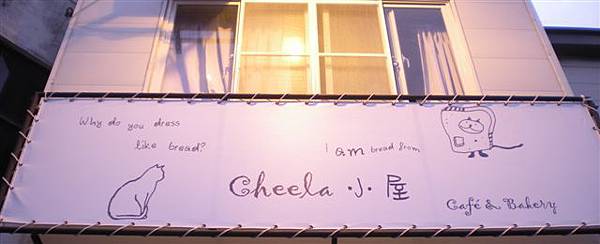 Why do you dress
like bread?
I am bread from
Cheela 小屋
Café & Bakery